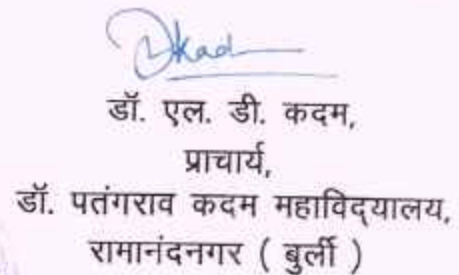 डॉ. एल. डी. कदम,
प्राचार्य,
डॉ. पतंगराव कदम महाविद्‌यालय,
रामानंदनगर ( बुर्ली )